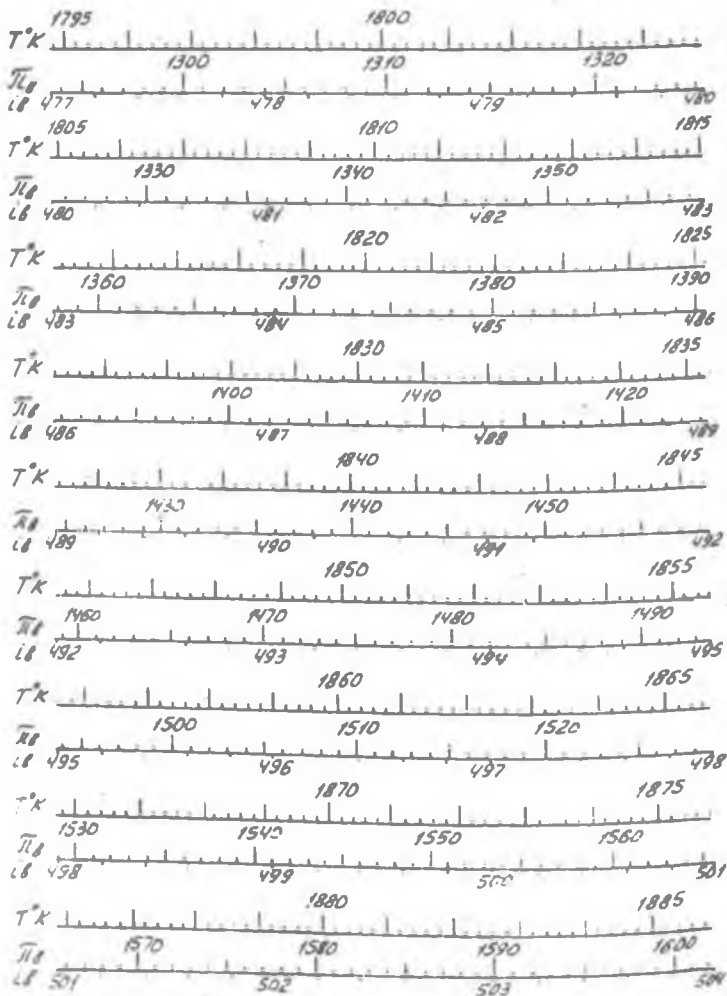 1795 1800
T°K
1300 1310 1320
π̅в
iв 477 478 479 480
1805 1810 1815
T°K
1330 1340 1350
π̅в
iв 480 481 482 483
1820 1825
T°K
1360 1370 1380 1390
π̅в
iв 483 484 485 486
1830 1835
T°K
1400 1410 1420
π̅в
iв 486 487 488 489
1840 1845
T°K
1430 1440 1450
π̅в
iв 489 490 491 492
1850 1855
T°K
1460 1470 1480 1490
π̅в
iв 492 493 494 495
1860 1865
T°K
1500 1510 1520
π̅в
iв 495 496 497 498
1870 1875
T°K
1530 1540 1550 1560
π̅в
iв 498 499 500 501
1880 1885
T°K
1570 1580 1590 1600
π̅в
iв 501 502 503 504